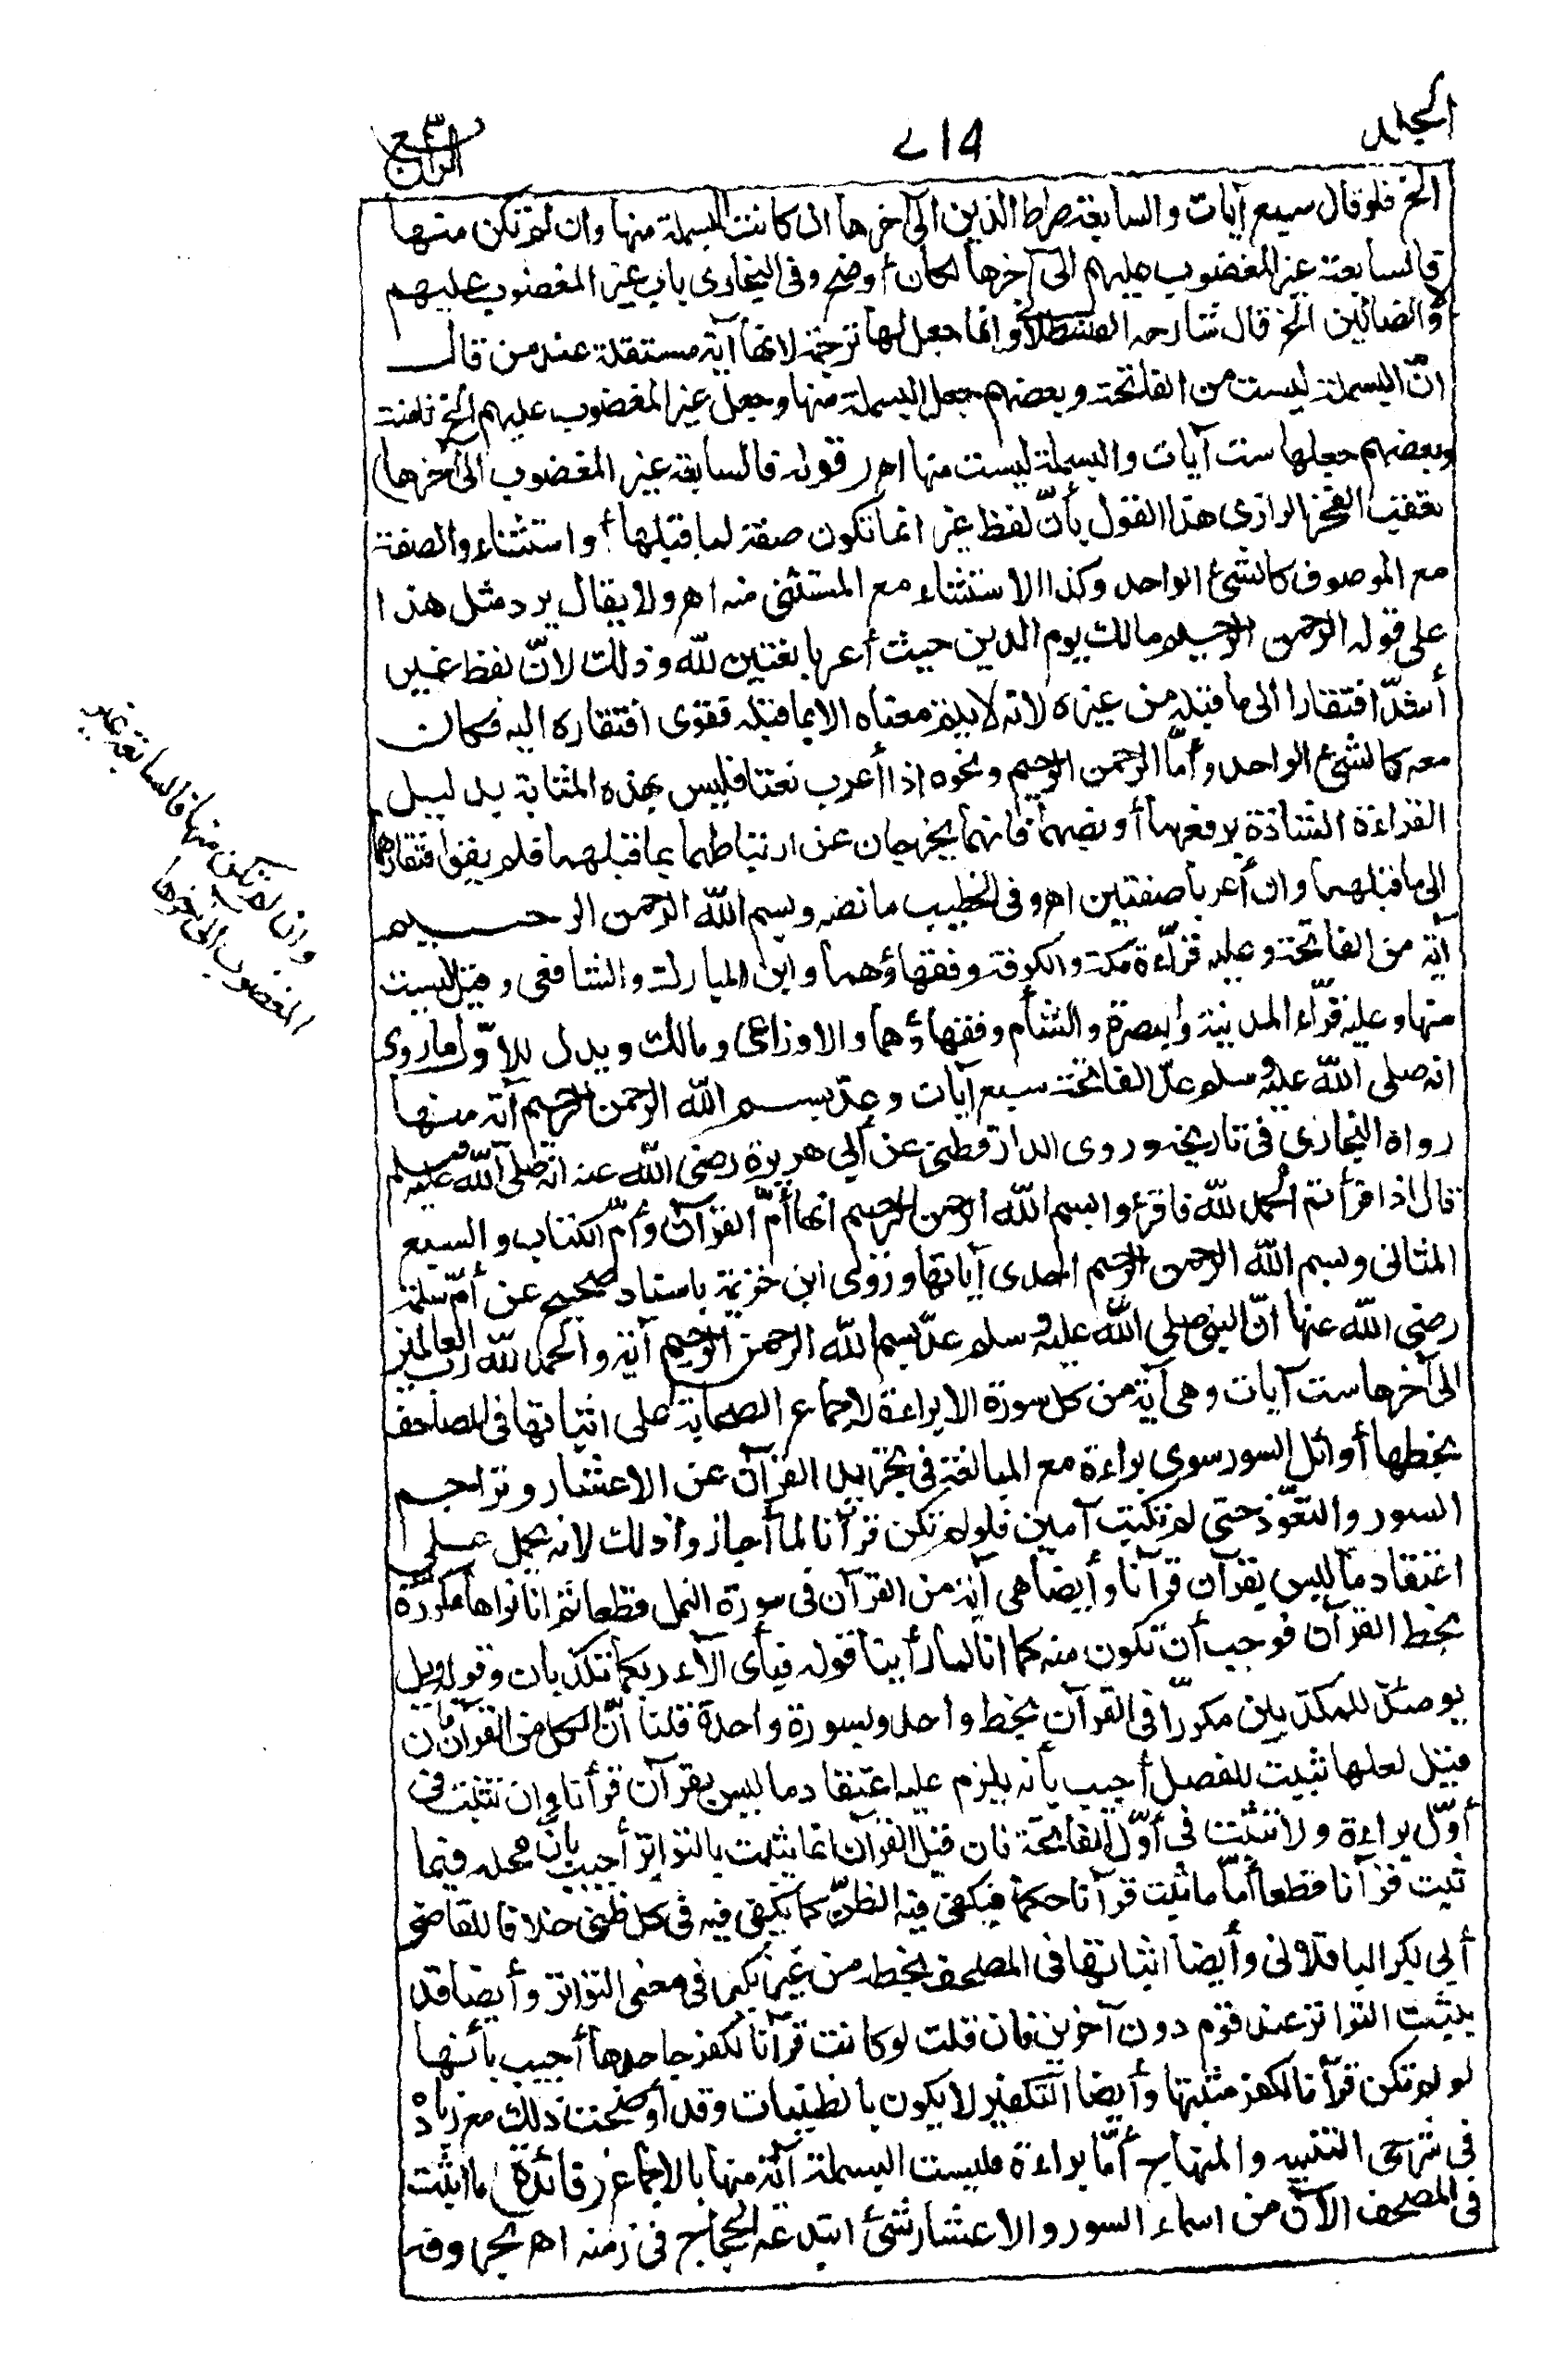 المجلد
٧١٩
الرابع
الخ فلو قال سبع آيات والسابعة صراط الذين الى آخرها ان كانت البسملة منها وان لم تكن منها
فالسابعة غير المغضوب عليهم الى آخرها لكان أوضح وفى البخارى باب غير المغضوب عليهم
ولا الضالين الخ قال شارحه القسطلانى وانما جعل لها ترجمة لانها آية مستقلة عند من قال
انّ البسملة ليست من الفاتحة وبعضهم جعل البسملة منها وجعل غير المغضوب عليهم الخ
وبعضهم جعلها ست آيات والبسملة ليست منها اهر قوله فالسابعة غير المغضوب الى آخرها)
تعقب الفخر الرازى هذا القول بأنّ لفظ غير انما تكون صفة لما قبلها أو استثناء والصفة
مع الموصوف كالشئ الواحد وكذا الاستثناء مع المستثنى منه اهر ولا يقال يرد مثل هذا
على قوله الرحمن الرحيم مالك يوم الدين حيث أعربا نعتين لله وذلك لانّ لفظ غير
أشدّ افتقارا الى ما قبله من غيره لانه لا يلزم معناه الا بما قبله فقوى افتقاره اليه فكان
معه كالشئ الواحد وأمّا الرحمن الرحيم ونحوه اذا أعرب نعتا فليس بهذه المثابة بدليل
القراءة الشاذة برفعهما أو نصبهما فانهما يخرجان عن ارتباطهما بما قبلهما فلم يقو افتقارهما
الى ما قبلهما وان أعربا صفتين اهر وفى الخطيب ما نصه وبسم الله الرحمن الرحيم
آية من الفاتحة وعليه قرّاء مكة والكوفة وفقهاؤهما وابن المبارك والشافعى وقيل ليست
منها وعليه قرّاء المدينة والبصرة والشأم وفقهاؤها والاوزاعى ومالك ويدل للاوّل ما روى
انه صلى الله عليه وسلم عدّ الفاتحة سبع آيات وعدّ بسم الله الرحمن الرحيم آية منها
رواه البخارى فى تاريخه وروى الدارقطنى عن أبى هريرة رضى الله عنه انه صلى الله عليه وسلم
قال اذا قرأتم الحمد لله فاقرؤا بسم الله الرحمن الرحيم انها أمّ القرآن وأمّ الكتاب والسبع
المثانى وبسم الله الرحمن الرحيم احدى آياتها وروى ابن خزيمة باسناد صحيح عن أمّ سلمة
رضى الله عنها انّ النبى صلى الله عليه وسلم عدّ بسم الله الرحمن الرحيم آية والحمد لله رب العالمين
الى آخرها ست آيات وهى آية من كل سورة الا براءة لاجماع الصحابة على اثباتها فى المصاحف
بخطها أوائل السور سوى براءة مع المبالغة فى تجريد القرآن عن الاعشار وتراجم
السور والتعوّذ حتى لم تكتب آمين فلو لم تكن قرآنا لما أجازوا ذلك لانه يحمل على
اعتقاد ما ليس بقرآن قرآنا وأيضا هى آية من القرآن فى سورة النمل قطعا ثم انا نراها مكرّرة
بخط القرآن فوجب أن تكون منه كما انا لما رأينا قوله فبأى آلاء ربكما تكذبان وقوله ويل
يومئذ للمكذبين مكرّرا فى القرآن بخط واحد وبسورة واحدة قلنا انّ الكل من القرآن فان
قيل لعلها ثبتت للفصل أجيب بأنه يلزم عليه اعتقاد ما ليس بقرآن قرأنا وان تثبت فى
أوّل براءة ولا تثبت فى أوّل الفاتحة فان قيل القرآن انما يثبت بالتواتر أجيب بأنّ محله فيما
ثبت قرآنا قطعا أمّا ما ثبت قرآنا حكما فيكفى فيه الظنّ كما يكفى فيه فى كل ظنى خلافا للقاضى
أبى بكر الباقلانى وأيضا اثباتها فى المصحف بخطه من غير نكير فى معنى التواتر وأيضا قد
يثبت التواتر عند قوم دون آخرين فان قلت لو كانت قرآنا لكفر جاحدها أجيب بأنها
لو لم تكن قرآنا لكفر مثبتها وأيضا التكفير لا يكون بالظنيات وقد أوضحت ذلك مع زيادة
فى شرحى التنبيه والمنهاج أمّا براءة فليست البسملة آية منها بالاجماع (فائدة) ما اثبت
فى المصحف الآن من اسماء السور والاعشار شئ ابتدعه الحجاج فى زمنه اهر بحروفه
وان لم تكن منها فالسابعة غير
المغضوب الى آخرها